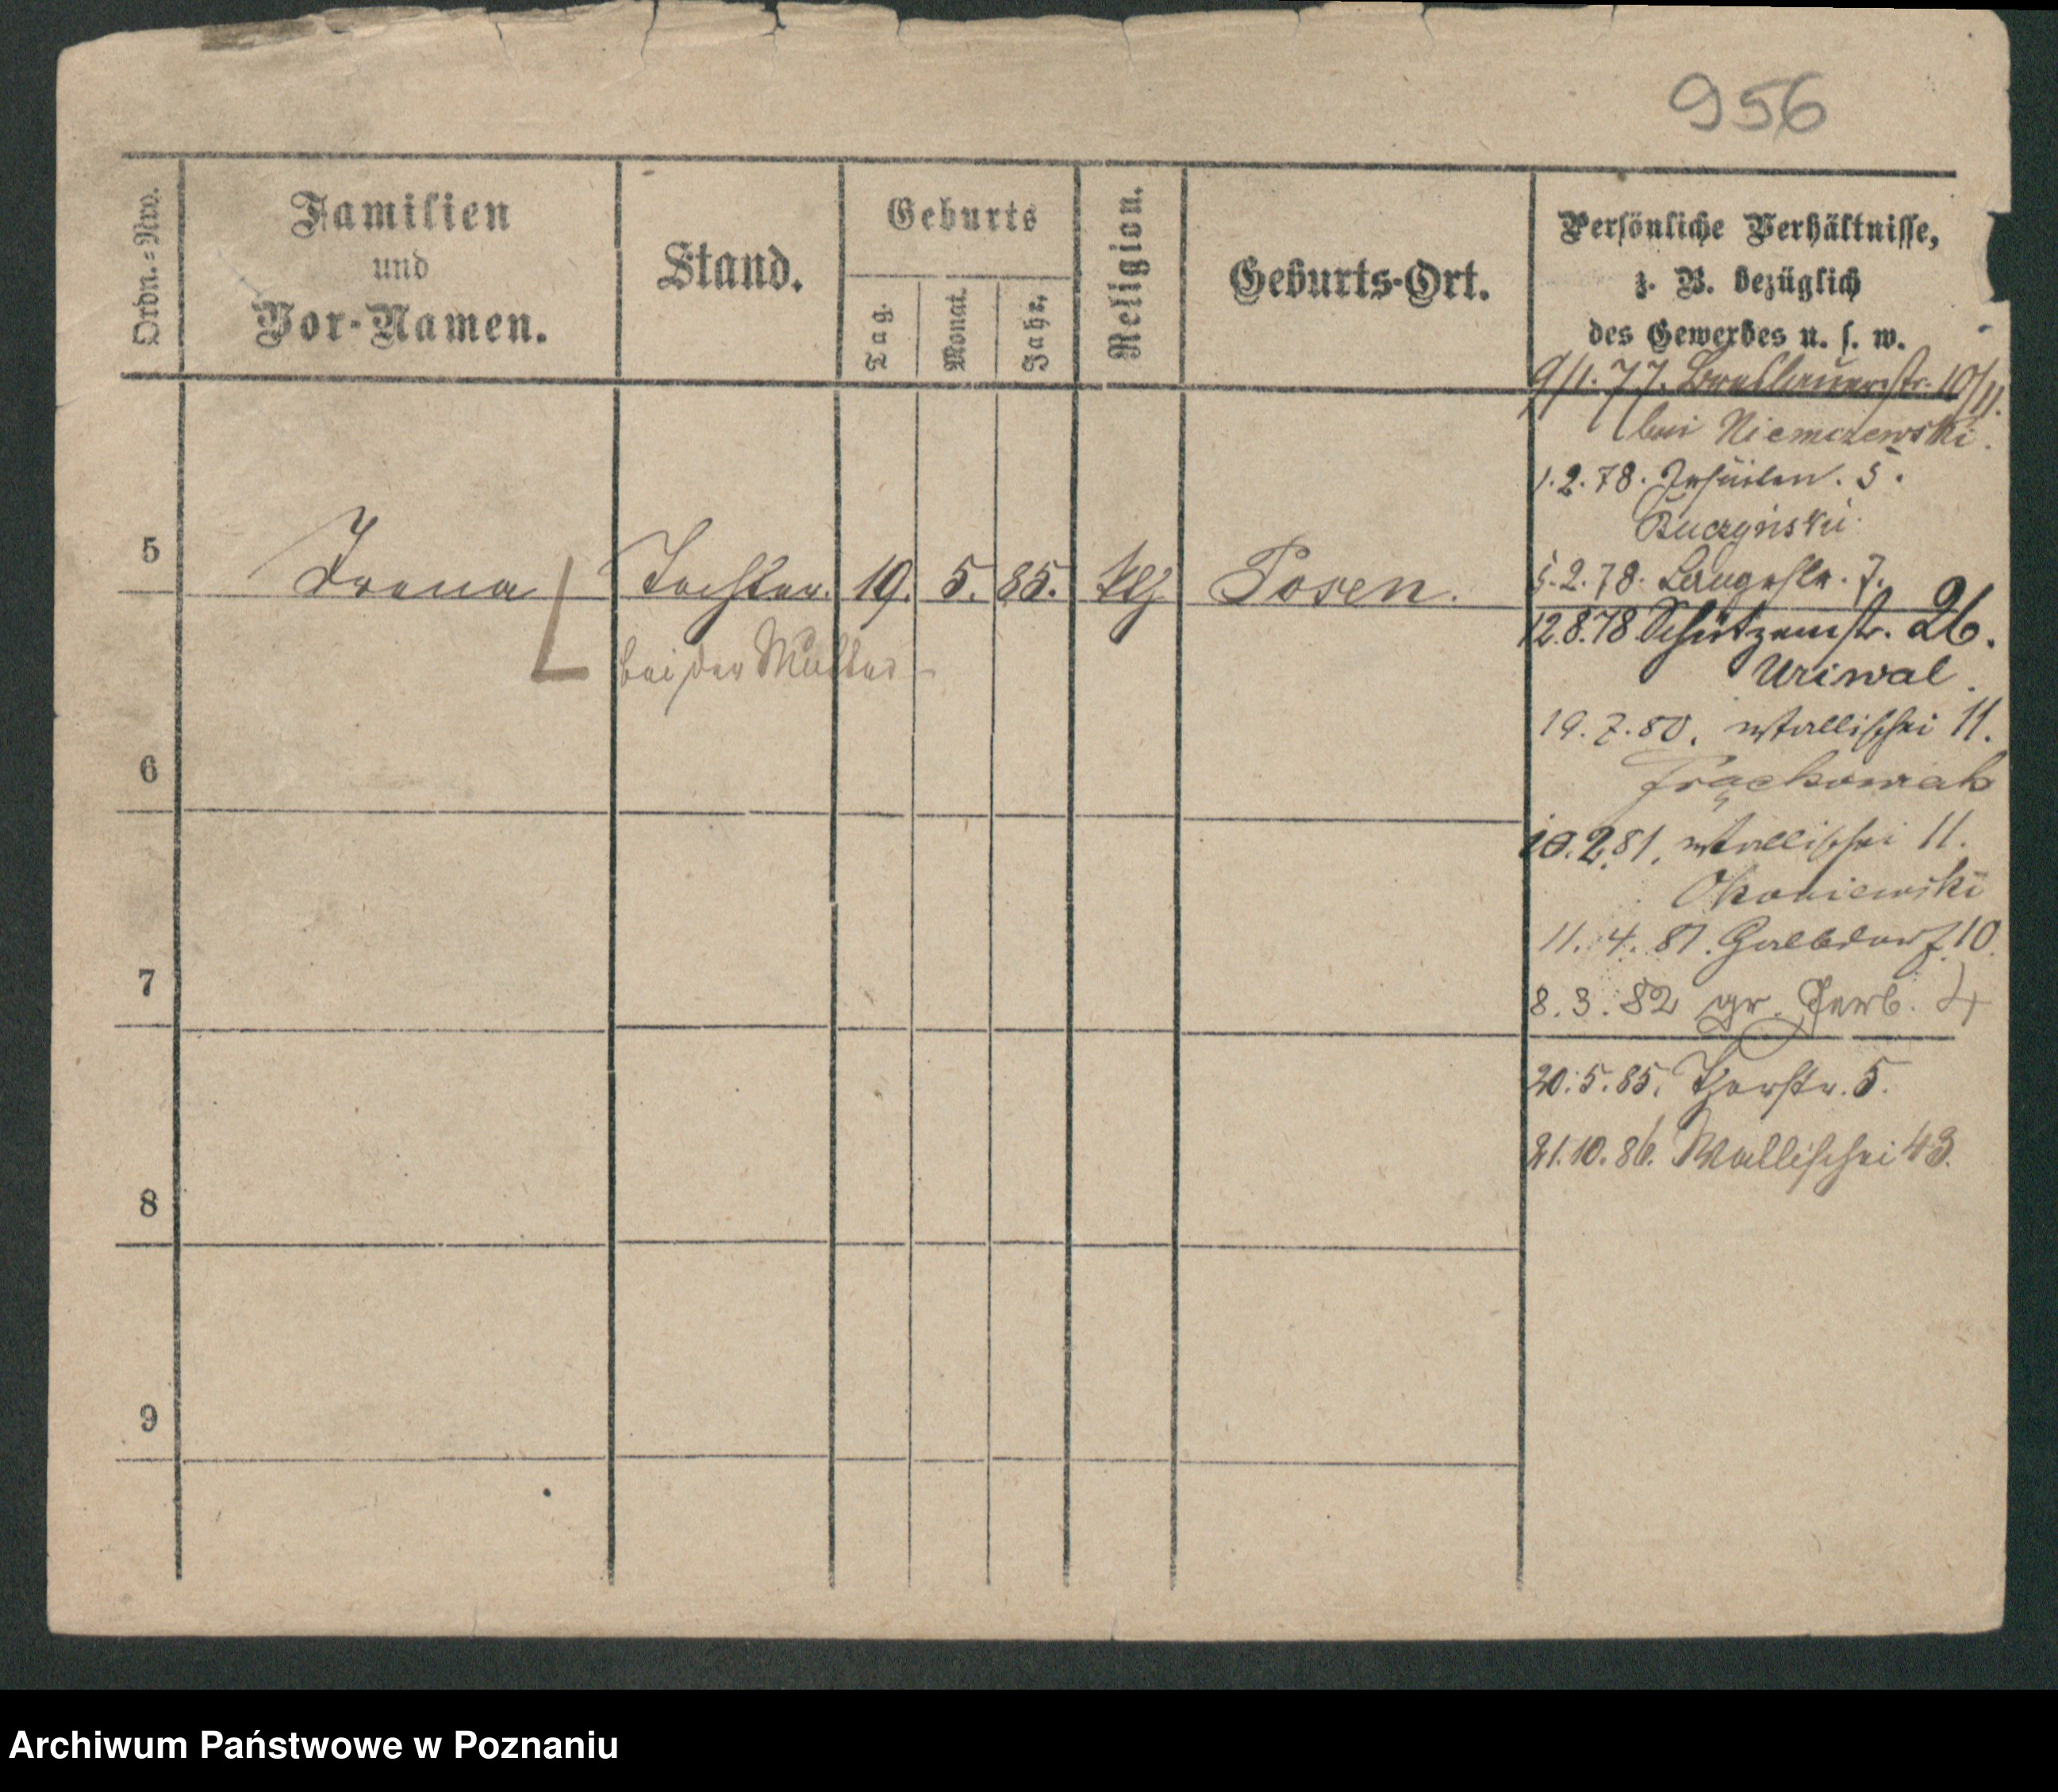 956
Ordn.-Nro.
Familien
und
Vor-Namen.
Stand.
Geburts
Tag.
Monat.
Jahr.
Religion.
Geburts-Ort.
Persönliche Verhältnisse,
z. B. bezüglich
des Gewerbes u. s. w.
9/11. 77. Breslauerstr. 10/11.
bei Niemczewski.
1.2.78. Jesuiten. 5.
Buczyński
5.2.78. Langestr. 7.
5 Irena Tochter. 19. 5. 85. Posen.
bei der Mutter
12.8.78 Schützenstr. 26.
Uriwal.
19.7.80. Wallischei 11.
Frąckowiak
6
10.2.81. Wallischei 11.
Okoniewski
11.4.81. Halbdorf. 10.
7
8.3.82 gr. Gerb. 4
20.5.85. Thorstr. 5.
21.10.86. Wallischei 43.
8
9
Archiwum Państwowe w Poznaniu